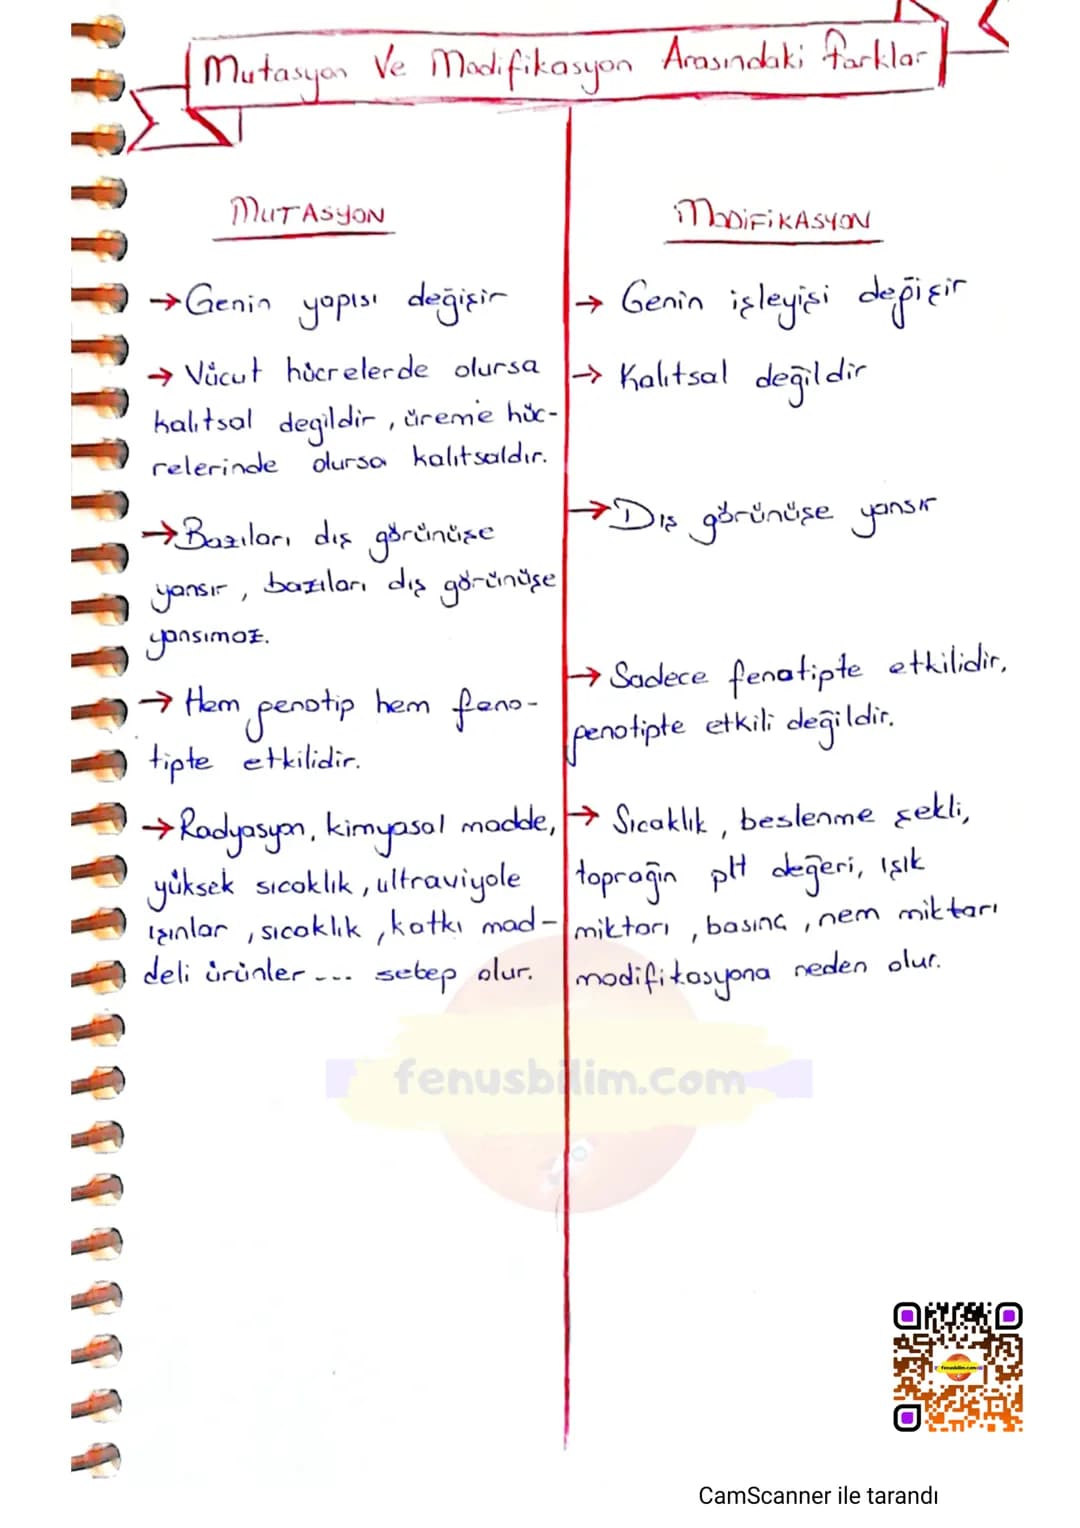 Mutasyon Ve Modifikasyon Arasındaki Farklar
MUTASYON
→ Genin yapısı değişir
→ Vücut hücrelerde olursa
kalıtsal degildir, üreme hüc-
relerinde olursa kalıtsaldır.
→ Bazıları dış görünüşe
yansır, bazıları dış görünüşe
yansımaz.
→ Hem genotip hem feno-
tipte etkilidir.
→ Radyasyon, kimyasal madde,
yüksek sıcaklık, ultraviyole
ışınlar, sıcaklık, katkı mad-
deli ürünler --- sebep olur.
MODİFİKASYON
→ Genin işleyişi değişir
→ Kalıtsal değildir
→ Dış görünüşe yansır
→ Sadece fenotipte etkilidir,
genotipte etkili değildir.
→ Sıcaklık, beslenme şekli,
toprağın pH değeri, ışık
miktarı, basınç, nem miktarı
modifikasyona neden olur.
fenusbilim.com
fenusbilim.com
CamScanner ile tarandı